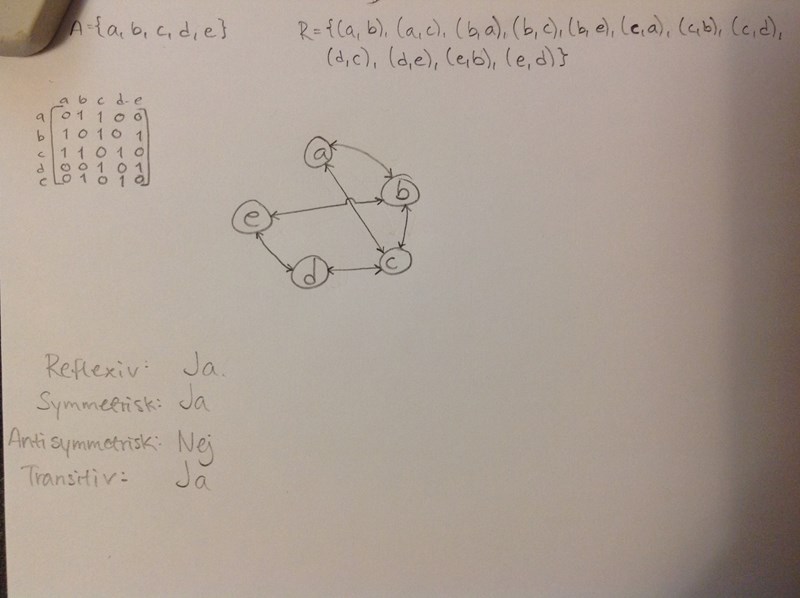 A={a, b, c, d, e}
R={(a, b), (a, c), (b, a), (b, c), (b, e), (c, a), (c, b), (c, d),
(d, c), (d, e), (e, b), (e, d)}
a b c d e
a 0 1 1 0 0
b 1 0 1 0 1
c 1 1 0 1 0
d 0 0 1 0 1
e 0 1 0 1 0
a
b
e
c
d
Reflexiv: Ja.
Symmetrisk: Ja
Antisymmetrisk: Nej
Transitiv: Ja